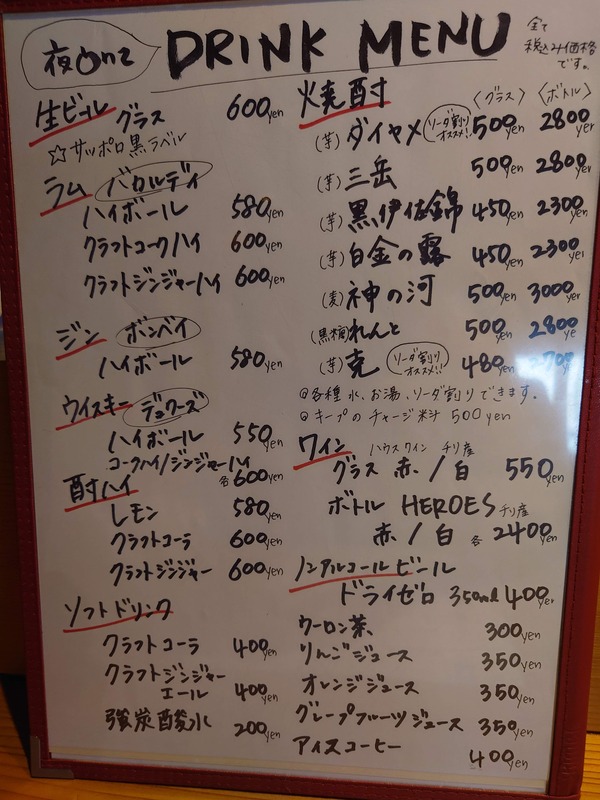 夜
DRINK MENU
全て
税込み価格
です。
生ビール グラス 600yen
☆サッポロ黒ラベル
ラム バカルディ
ハイボール 580yen
クラフトコークハイ 600yen
クラフトジンジャーハイ 600yen
ジン ボンベイ
ハイボール 580yen
ウイスキー デュワーズ
ハイボール 550yen
コークハイ/ジンジャーハイ
各600yen
酎ハイ
レモン 580yen
クラフトコーラ 600yen
クラフトジンジャー 600yen
ソフトドリンク
クラフトコーラ 400yen
クラフトジンジャー
エール 400yen
強炭酸水 200yen
焼酎 〈グラス〉 〈ボトル〉
(芋) ダイヤメ ソーダ割り オススメ!! 500yen 2800yen
(芋) 三岳 500yen 2800yen
(芋) 黒伊佐錦 450yen 2300yen
(芋) 白金の露 450yen 2300yen
(麦) 神の河 500yen 3000yen
(黒糖) れんと 500yen 2800ye
(芋) 克 ソーダ割り オススメ!! 480yen 2700yen
◎各種 水、お湯、ソーダ割りできます。
◎キープのチャージ料 500yen
ワイン ハウスワイン チリ産
グラス 赤/白 550yen
ボトル HEROES チリ産
赤/白 各2400yen
ノンアルコールビール
ドライゼロ 350ml 400yen
ウーロン茶 300yen
りんごジュース 350yen
オレンジジュース 350yen
グレープフルーツジュース 350yen
アイスコーヒー 400yen